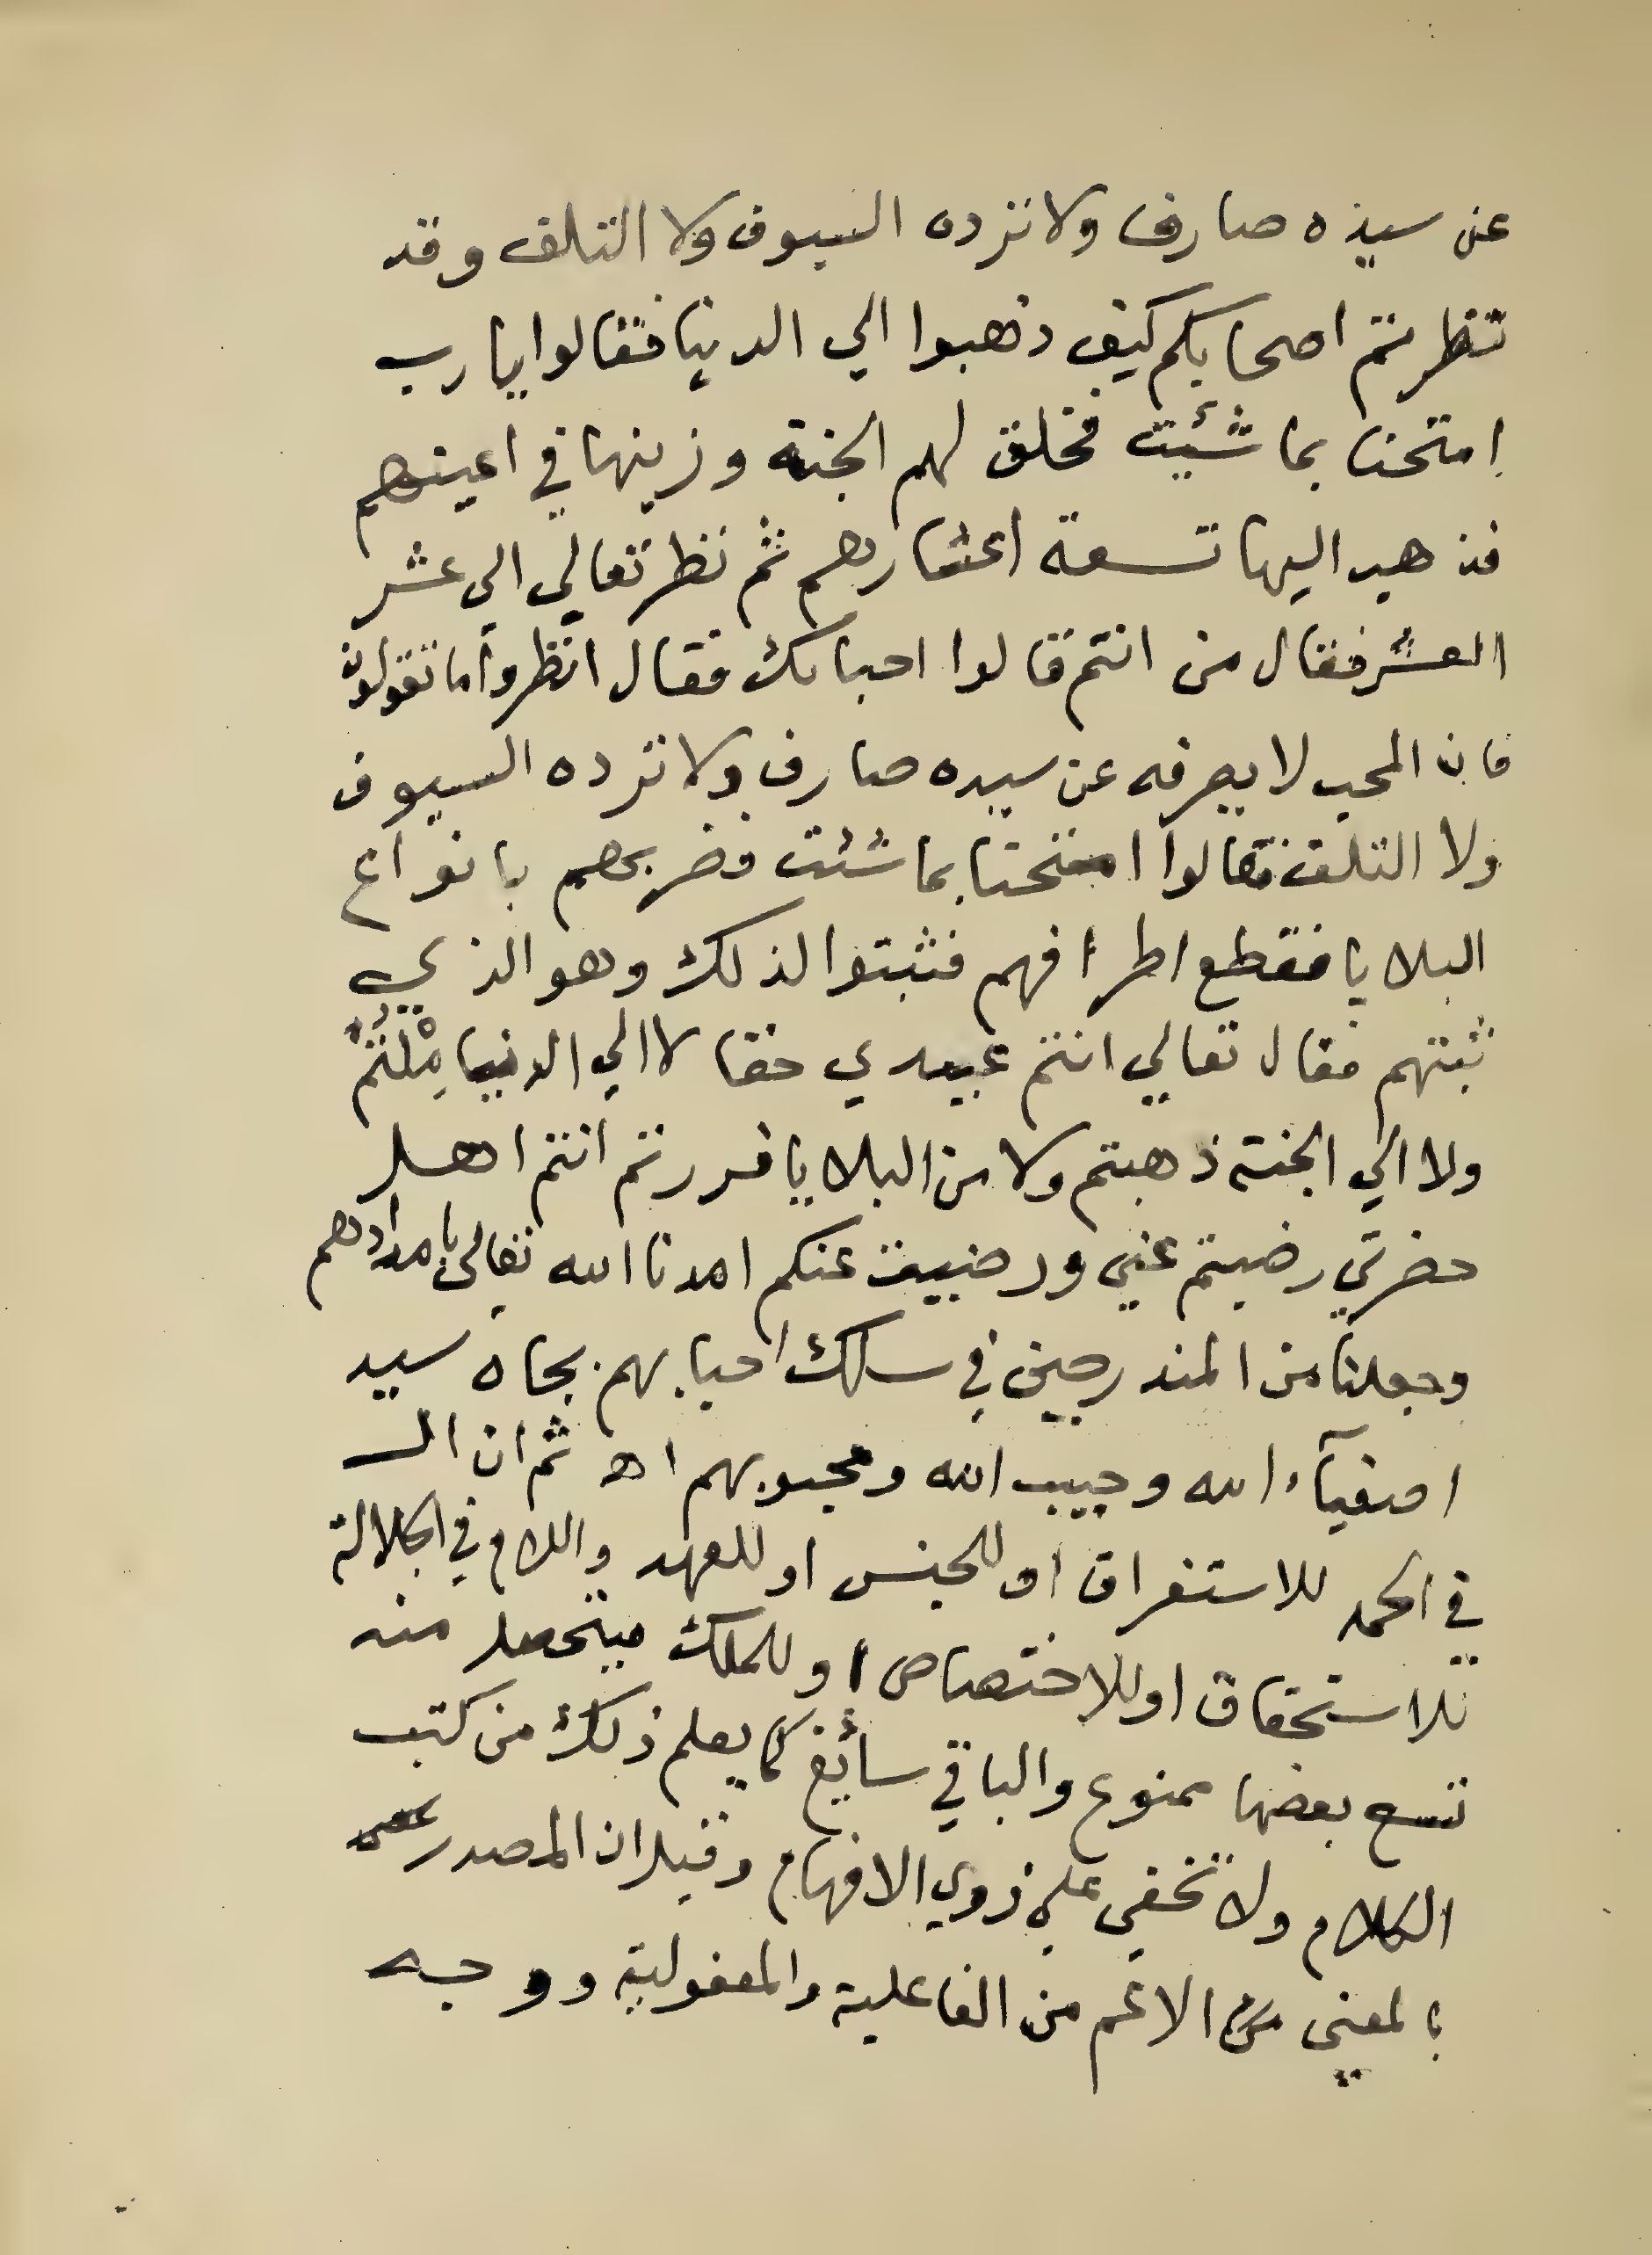 عن سيده صارف ولا تزده السيوف ولا التلف وقد
تنظرتم اصحابكم كيف ذهبوا الي الدنيا فقالوا يا رب
امتحنا بما شئت فخلق لهم الجنة وزينها في اعينهم
فذهب اليها تسعة اعشارهم ثم نظر تعالي الي عشر
العشر فقال من انتم قالوا احبابك فقال انظروا ما تقولون
فان المحب لا يصرفه عن سيده صارف ولا تزده السيوف
ولا التلف فقالوا امتحنا بما شئت فضربهم بانواع
البلايا فقطع اطرافهم فثبتوا لذلك وهو الذي
ثبتهم فقال تعالي انتم عبيدي حقا لا الي الدنيا مِلْتُمْ
ولا الي الجنة ذهبتم ولا من البلايا فررتم انتم اهل
حضرتي رضيتم عني ورضيت عنكم امدنا الله تعالى بامدادهم
وجعلنا من المندرجين في سلك احبابهم بجاه سيد
اصفيآء الله وحبيب الله ومحبوبهم اه ثم ان ال
في الحمد للاستغراق او للجنس او للعهد واللام في الجلالة
للاستحقاق او للاختصاص او للملك فيتحصل منه
تسع بعضها ممنوع والباقي سائغ كما يعلم ذلك من كتب
الكلام ولا تخفى علي ذوي الافهام وقيل ان المصدر
بالمعني الاعم من الفاعلية والمفعولية ووجه